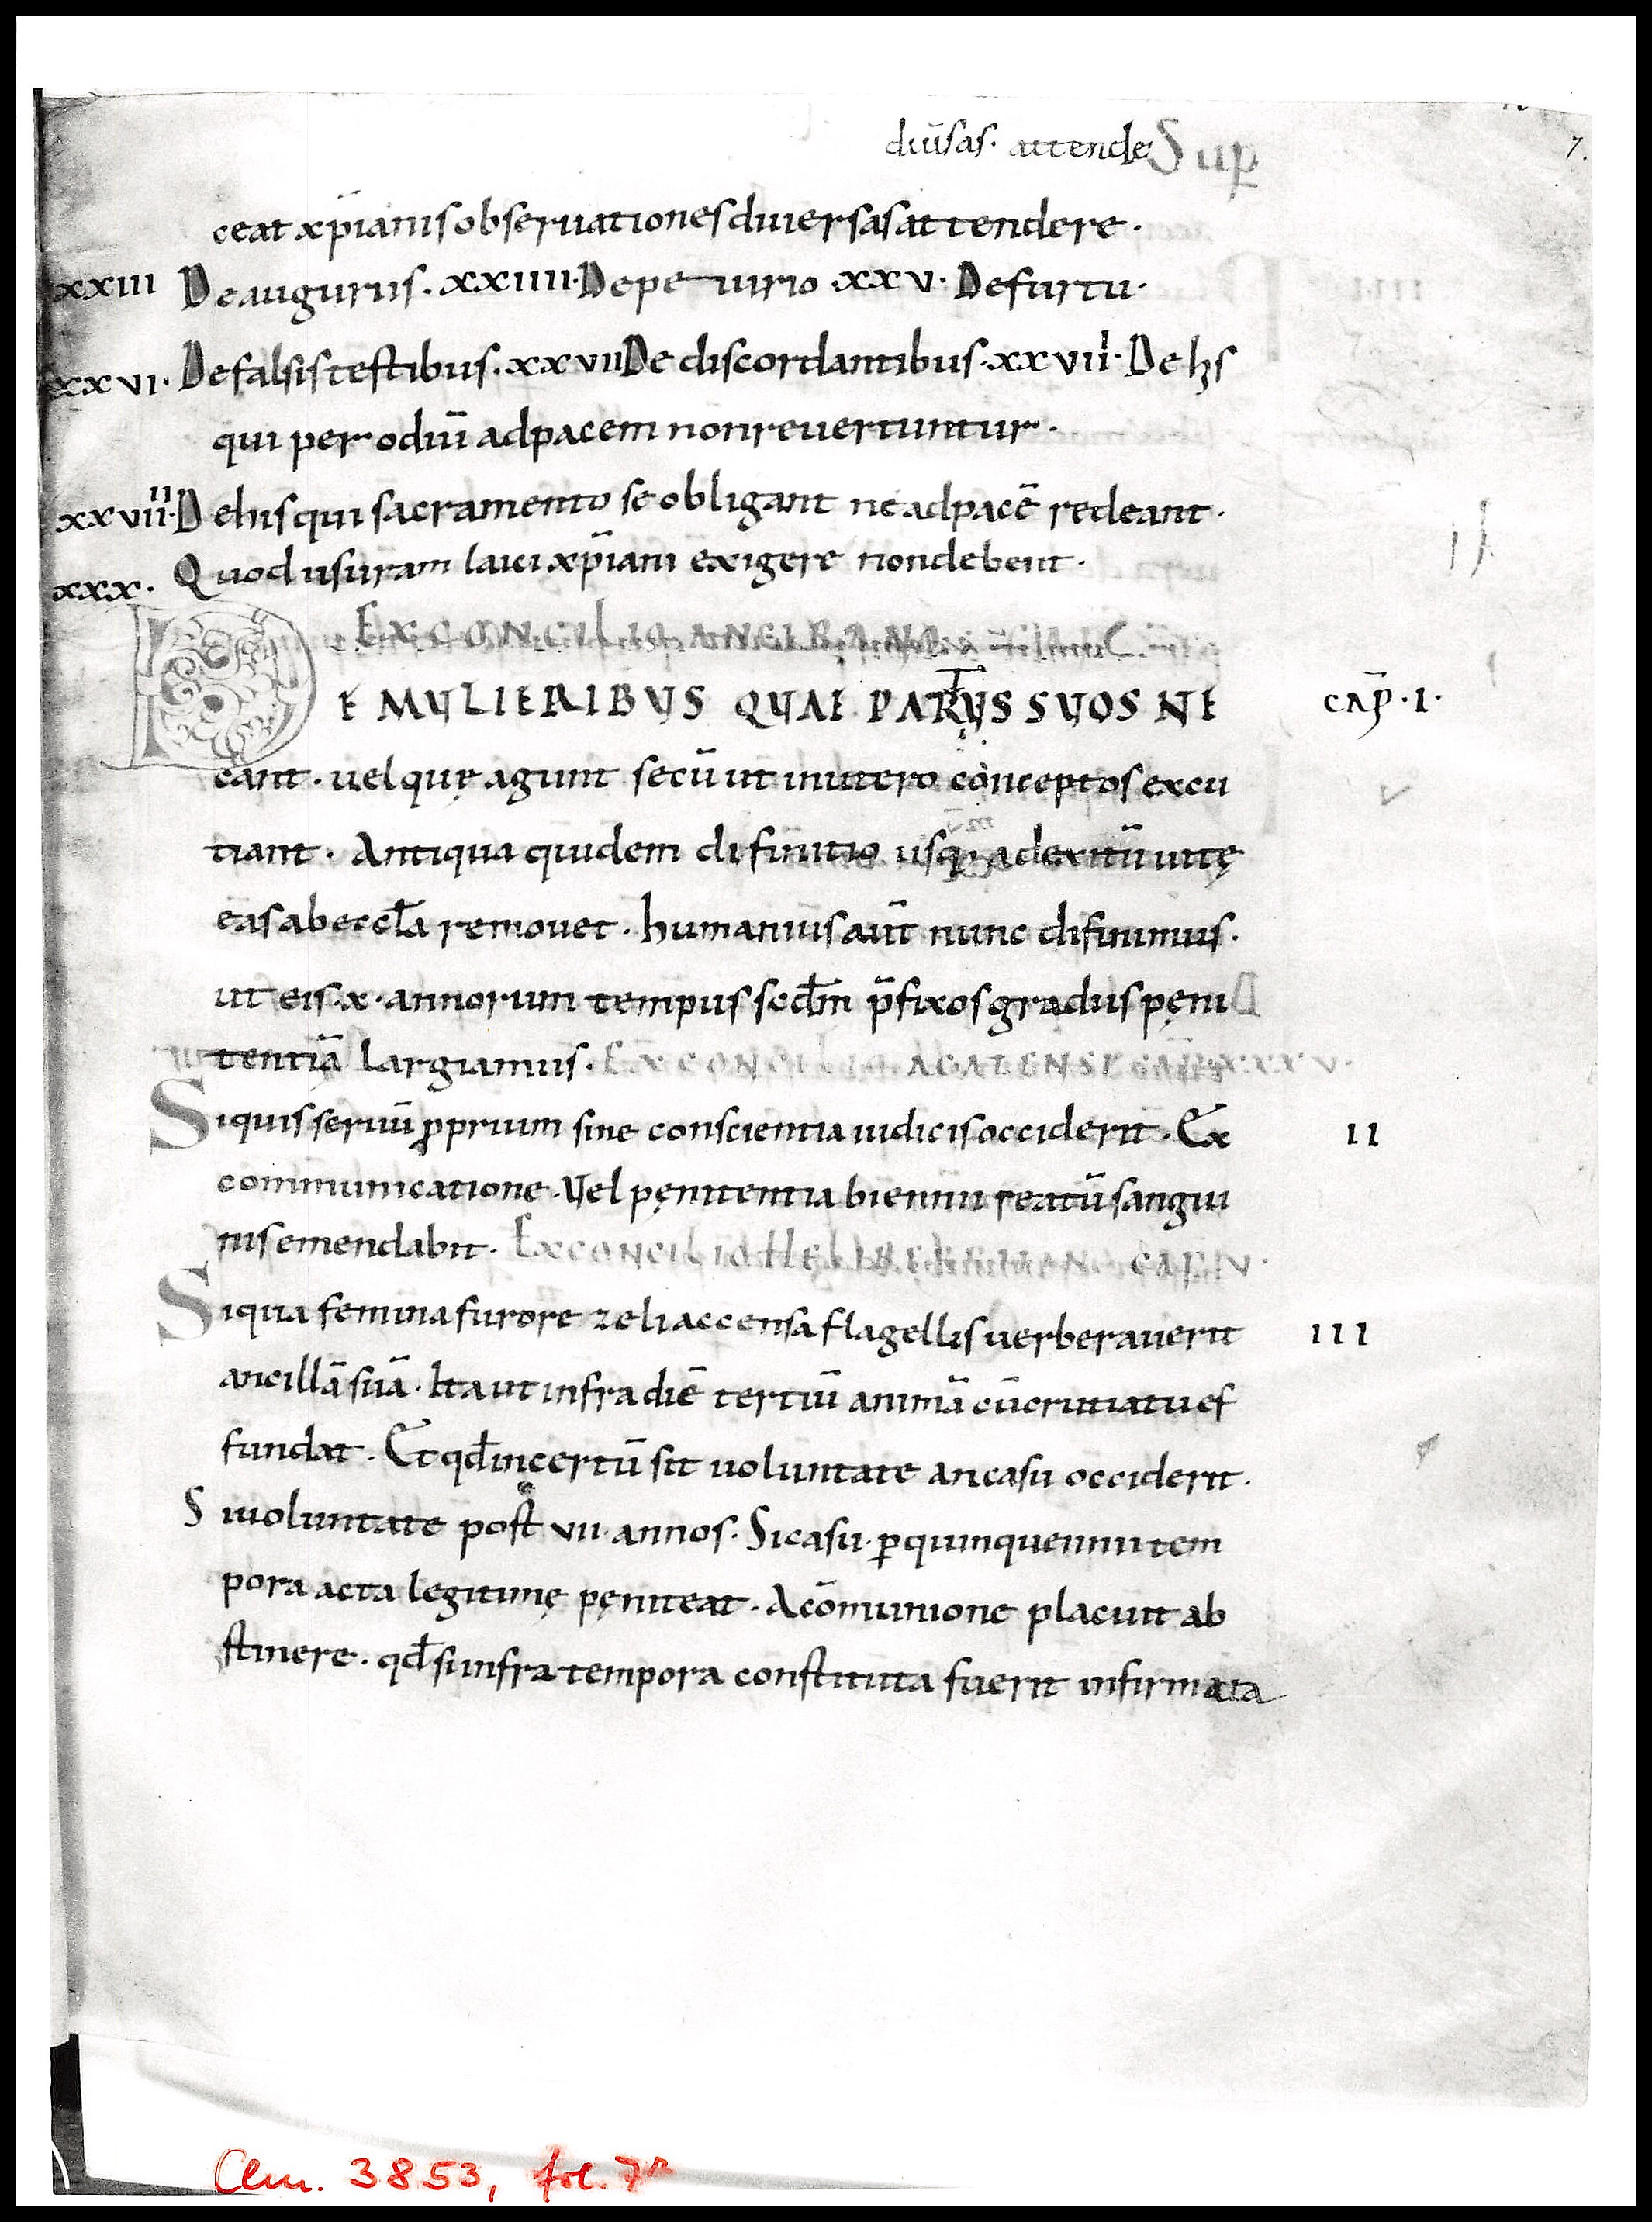 diūsas. attende Sup
7.
ceat xp̄ianis obseruationes diuersas attendere.
XXIII De auguriis. XXIIII. De periurio. XXV. De furtu.
XXVI. De falsis testibus. XXVII De discordantibus. XXVIII. De hs
qui per odiū ad pacem non reuertuntur.
XXVIIII. De his qui sacramento se obligant ne ad pacē redeant.
XXX. Quod usuram laici xp̄iani exigere non debent.
EX CONCILIO ANCIRANO
DE MULIERIBUS QUAE PARTUS SUOS NE CAP̄. I.
cant. uel quę agunt secū ut in utero conceptos excu
tiant. Antiqua quidem difinitio usq; ad exitū uitę
eas ab eccl̄a remouet. humanius aūt nunc difinimus.
ut eis. x. annorum tempus secdm̄ p̄fixos gradus pęni
tentiā largiamus. EX CONCILIO AGATENSE CAP̄. XXXV.
Siquis seruū ꝓprium sine conscientia iudicis occiderit. Ex II
communicatione. Vel pęnitentia biennii reatū sangui
nis emendabit. EX CONCILIO HELIBERITANO CAP. V.
Siqua femina furore zeli accensa flagellis uerberauerit III
ancillā suā. Ita ut infra diē tertiū animā cū crutiatu ef
fundat. Et qd̄ incertū sit uoluntate an casu occiderit.
Si uoluntate post VII. annos. Si casu. ꝑ quinquennii tem
pora acta legitimę pęniteat. A cōmunione placuit ab
stinere. qd̄ si infra tempora constituta fuerit infirmata
Clm. 3853, fol. 7r